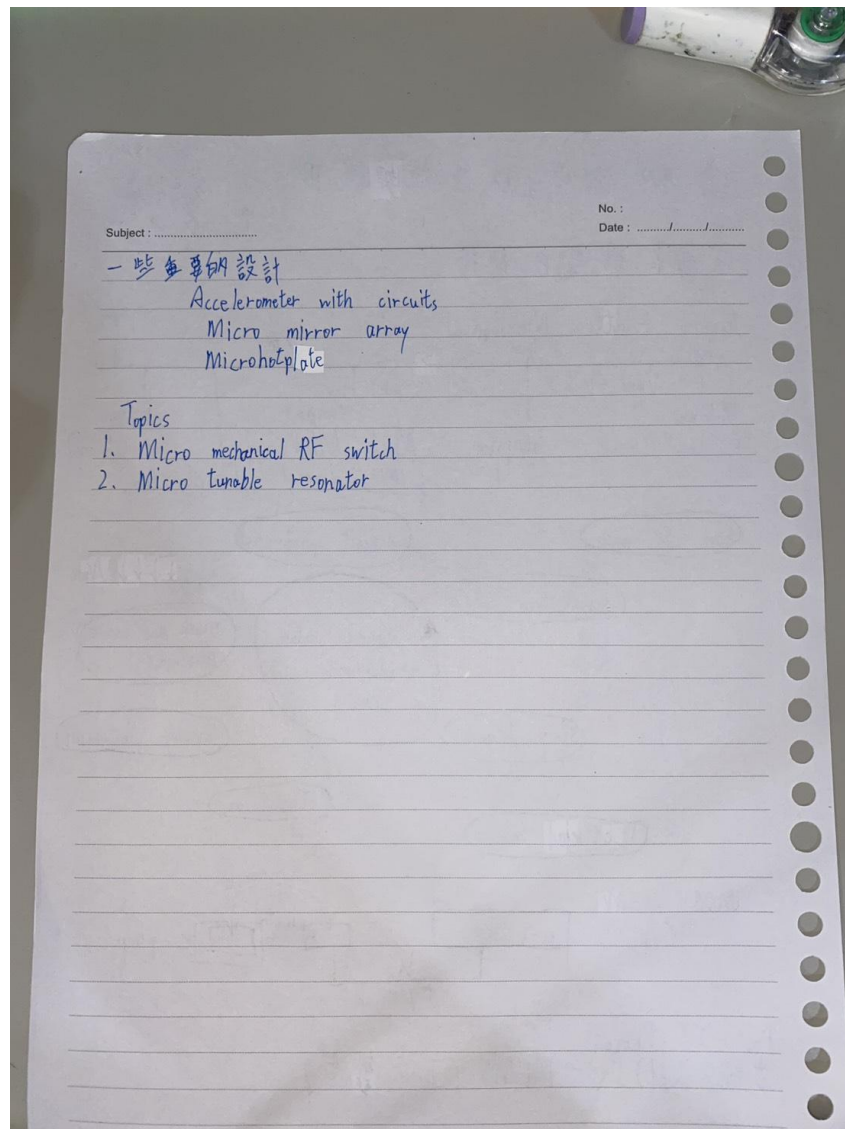 No. :
Subject : ................................
Date : ........../........../...........
一些重要的設計
Accelerometer with circuits
Micro mirror array
Microhotplate
Topics
1. Micro mechanical RF switch
2. Micro tunable resonator